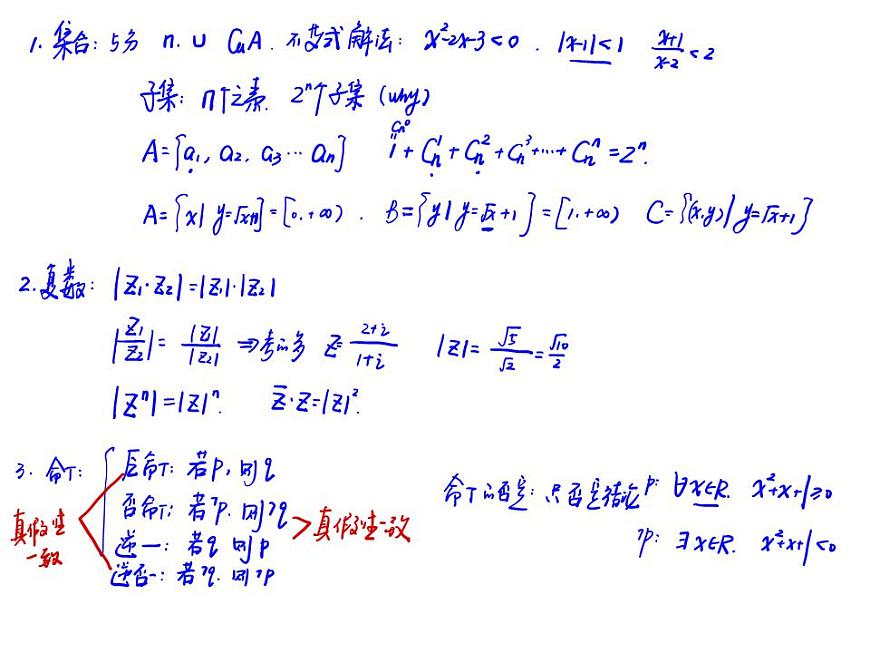 1. 集合: 5分 ∩. ∪ C_uA. 不等式解法: x²-2x-3<0 . |x-1|<1 (x+1)/(x-2)<2
子集: n个元素. 2ⁿ个子集 (why)
A={a₁, a₂, a₃…aₙ} Cₙ⁰ = 1+Cₙ¹+Cₙ²+Cₙ³+…+Cₙⁿ=2ⁿ.
A={x| y=√x+1}=[0.+∞) . B={y| y=√x+1}=[1.+∞) C={(x,y)| y=√x+1}
2.复数: |Z₁·Z₂|=|Z₁|·|Z₂|
|Z₁/Z₂|=|Z₁|/|Z₂| ⇒考的多 Z=(2+i)/(1+i) |Z|=√5/√2=√10/2
|Zⁿ|=|Z|ⁿ. Z̄·Z=|Z|².
3. 命T: 原命T: 若P, 则q
否命T: 若¬P. 则¬q
逆一: 若q 则P
逆否一: 若¬q. 则¬P
真假性
一致
真假性一致
命T的否定: 只否定结论 P: ∀x∈R. x²+x+1≥0
¬P: ∃x∈R. x²+x+1<0